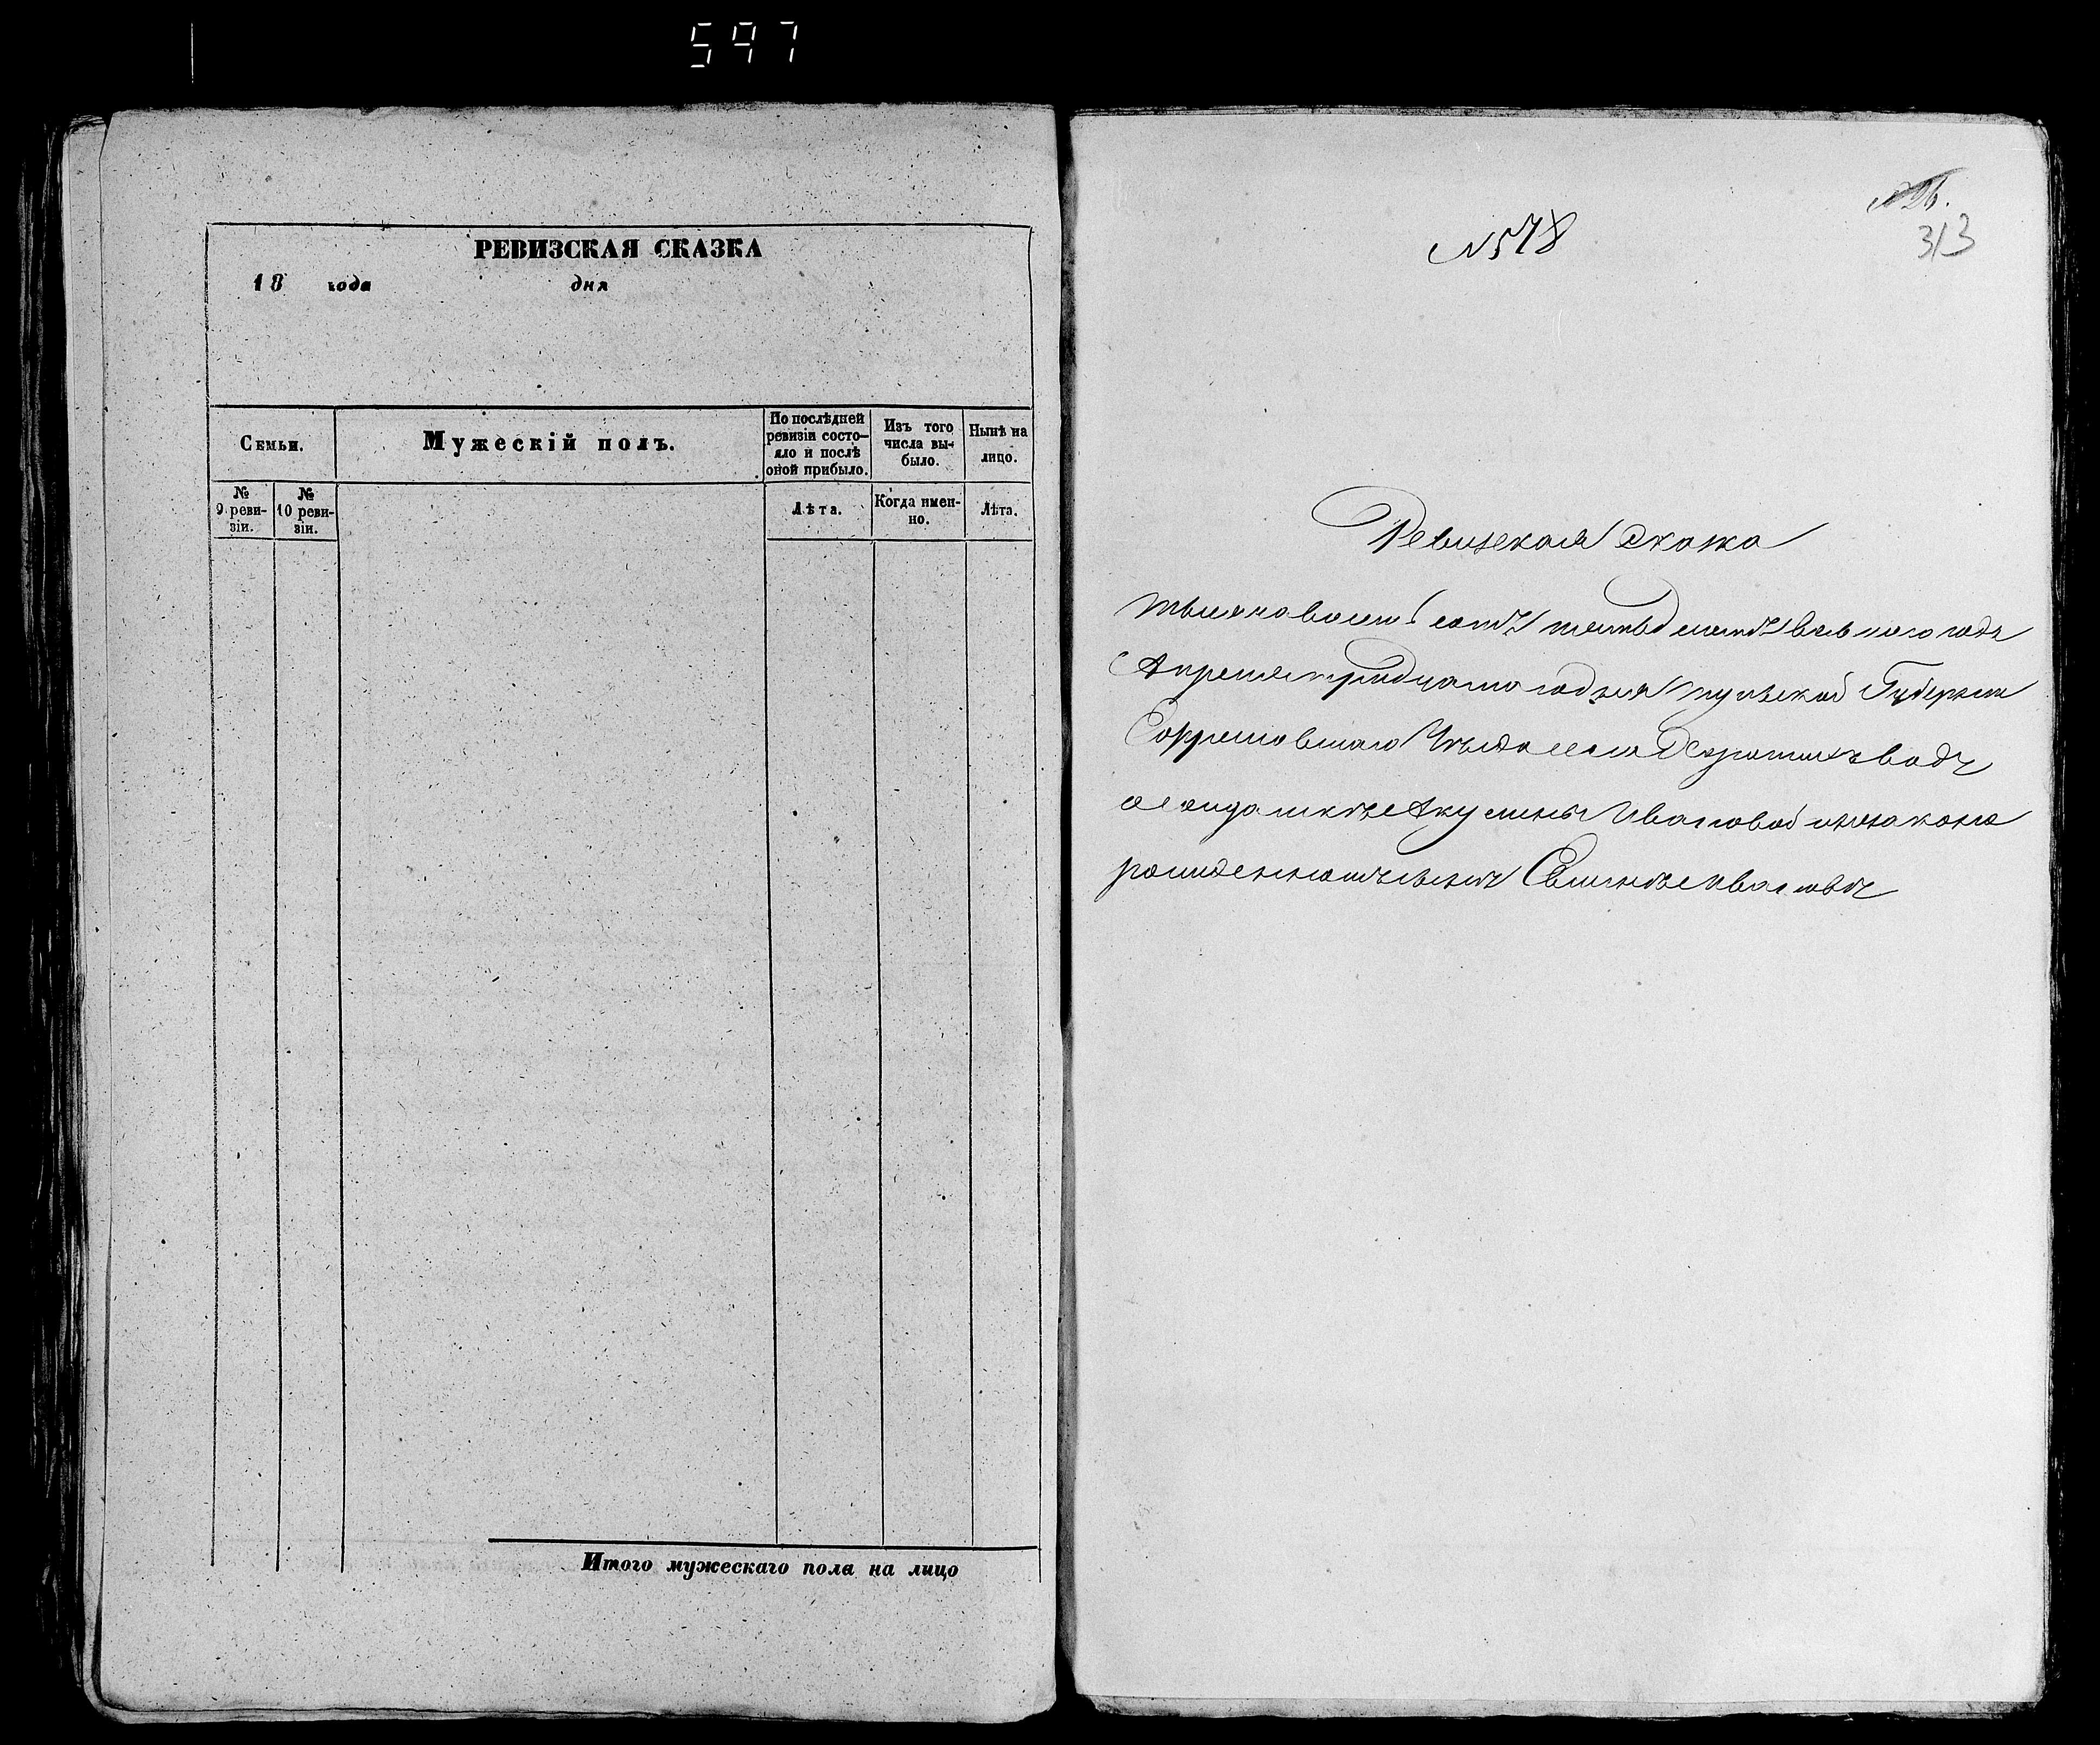 597
РЕВИЗСКАЯ СКАЗКА
18 года дня
Семьи.
Мужескій полъ.
По послѣдней ревизіи состо-
яло и послѣ
оной прибыло.
Изъ того
числа вы-
было.
Нынѣ на
лицо.
№
9 реви-
зіи.
№
10 реви-
зіи.
Лѣта.
Когда имен-
но.
Лѣта.
Итого мужескаго пола на лицо
№26.
313
№578
Ревизская сказка
тысяча восемь сотъ пятьдесятъ восьмого года
Апреля тридцатого дня Тульской Губернии
Ефремовского Уезда села
Акулины Ивановой